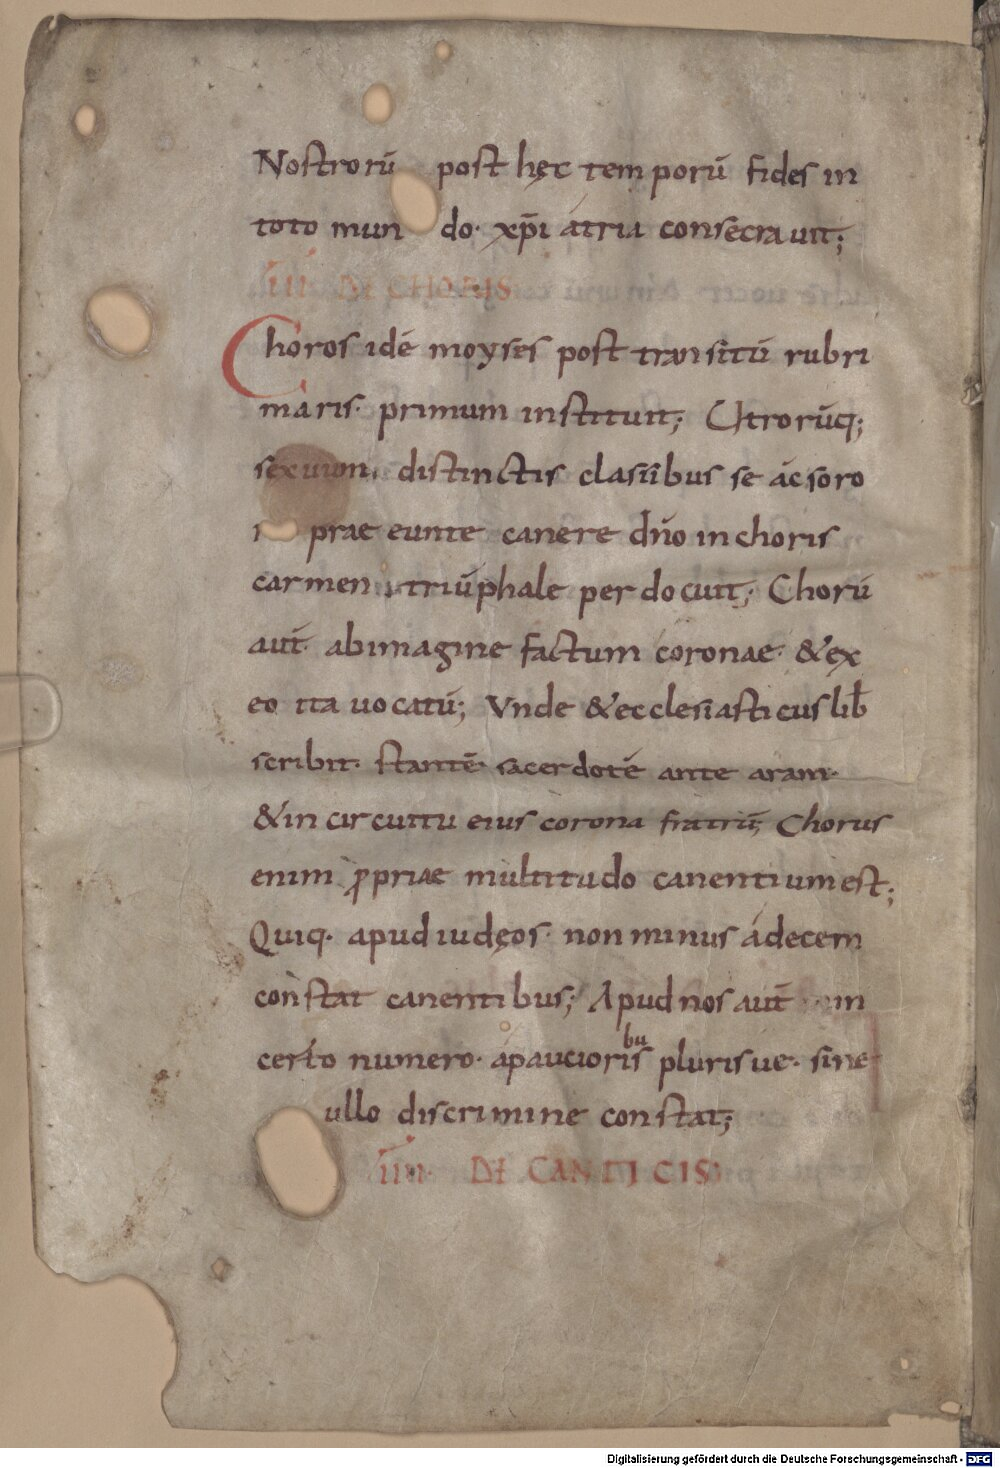 Nostrorū post hęc temporū fides in
toto mundo· xp̄i atria consecrauit;
III DE CHORIS
Choros idē moyses post transitū rubri
maris· primum instituit; Utrorūq;
sexuum· distinctis classibus se ac soro
prae eunte canere dn̄o in choris
carmen triūphale perdocuit; Chorū
aut̄ ab imagine factum coronae· & ex
eo ita uocatū; Unde & ecclesiasticus lib̄
scribit· stantē sacerdotē ante aram·
& in circuitu eius corona fratrū; Chorus
enim ꝓpriae multitudo canentium est;
Quiq· apud iudęos· non minus a decem
constat canentibus; Apud nos aut̄ in
certo numero· a paucioribus plurisue· sine
ullo discrimine constat;
IIII· DE CANTICIS
Digitalisierung gefördert durch die Deutsche Forschungsgemeinschaft - DFG